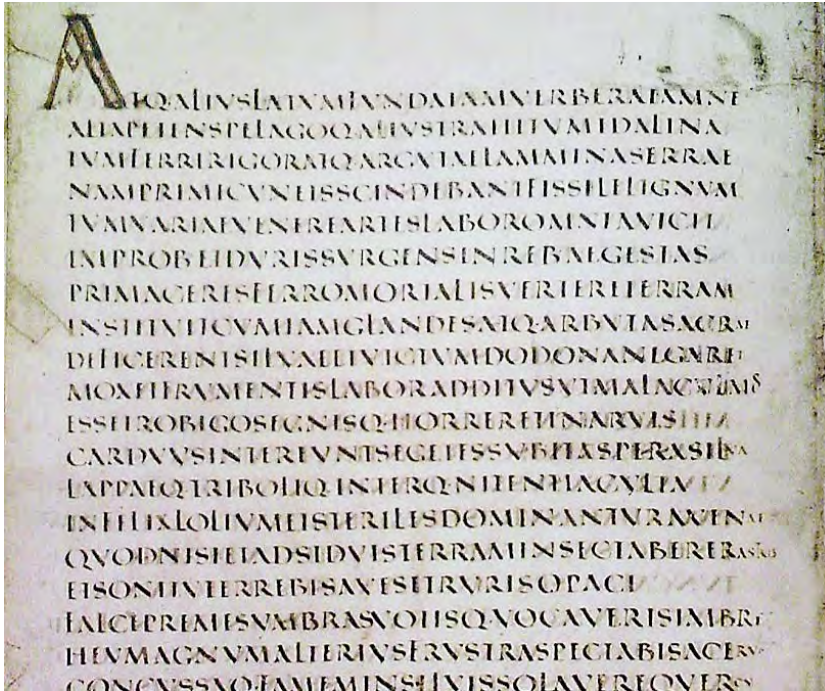 ATQ·ALIVSLATVMFVNDAIAMVERBERATAMNE
ALTAPETENSPELAGOQ·ALIVSTRAHITVMIDALINA
TVMFERRIRIGORATQ·ARGVTAELAMMINASERRAE
NAMPRIMICVNEISSCINDEBANTFISSILELIGNVM
TVMVARIAEVENEREARTESLABOROMNIAVICIT
IMPROBETDVRISSVRGENSINREBAEGESTAS
PRIMACERESFERROMORTALISVERTERETERRAM
INSTITVITCVMIAMGLANDESATQ·ARBVTASACRAE
DEFICERENTSILVAEETVICTVMDODONANEGARET
MOXETFRVMENTISLABORADDITVSVTMALACVLMOS
ESSETROBIGOSEGNISQ·HORRERETINARVIS
CARDVVSINTEREVNTSEGETESSVBITASPERASILVA
LAPPAEQ·TRIBOLIQ·INTERQ·NITENTIACVLTA
INFELIXLOLIVMETSTERILESDOMINANTVRAVENAE
QVODNISIETADSIDVISTERRAMINSECTABERERASTRIS
ETSONITVTERREBISAVESETRVRISOPACI
FALCEPREMESVMBRASVOTISQ·VOCAVERISIMBRE
HEVMAGNVMALTERIVSFRVSTRASPECTABISACERVV
CONCVSSAQ·FAMEMINSILVISSOLAVEREQVERCV